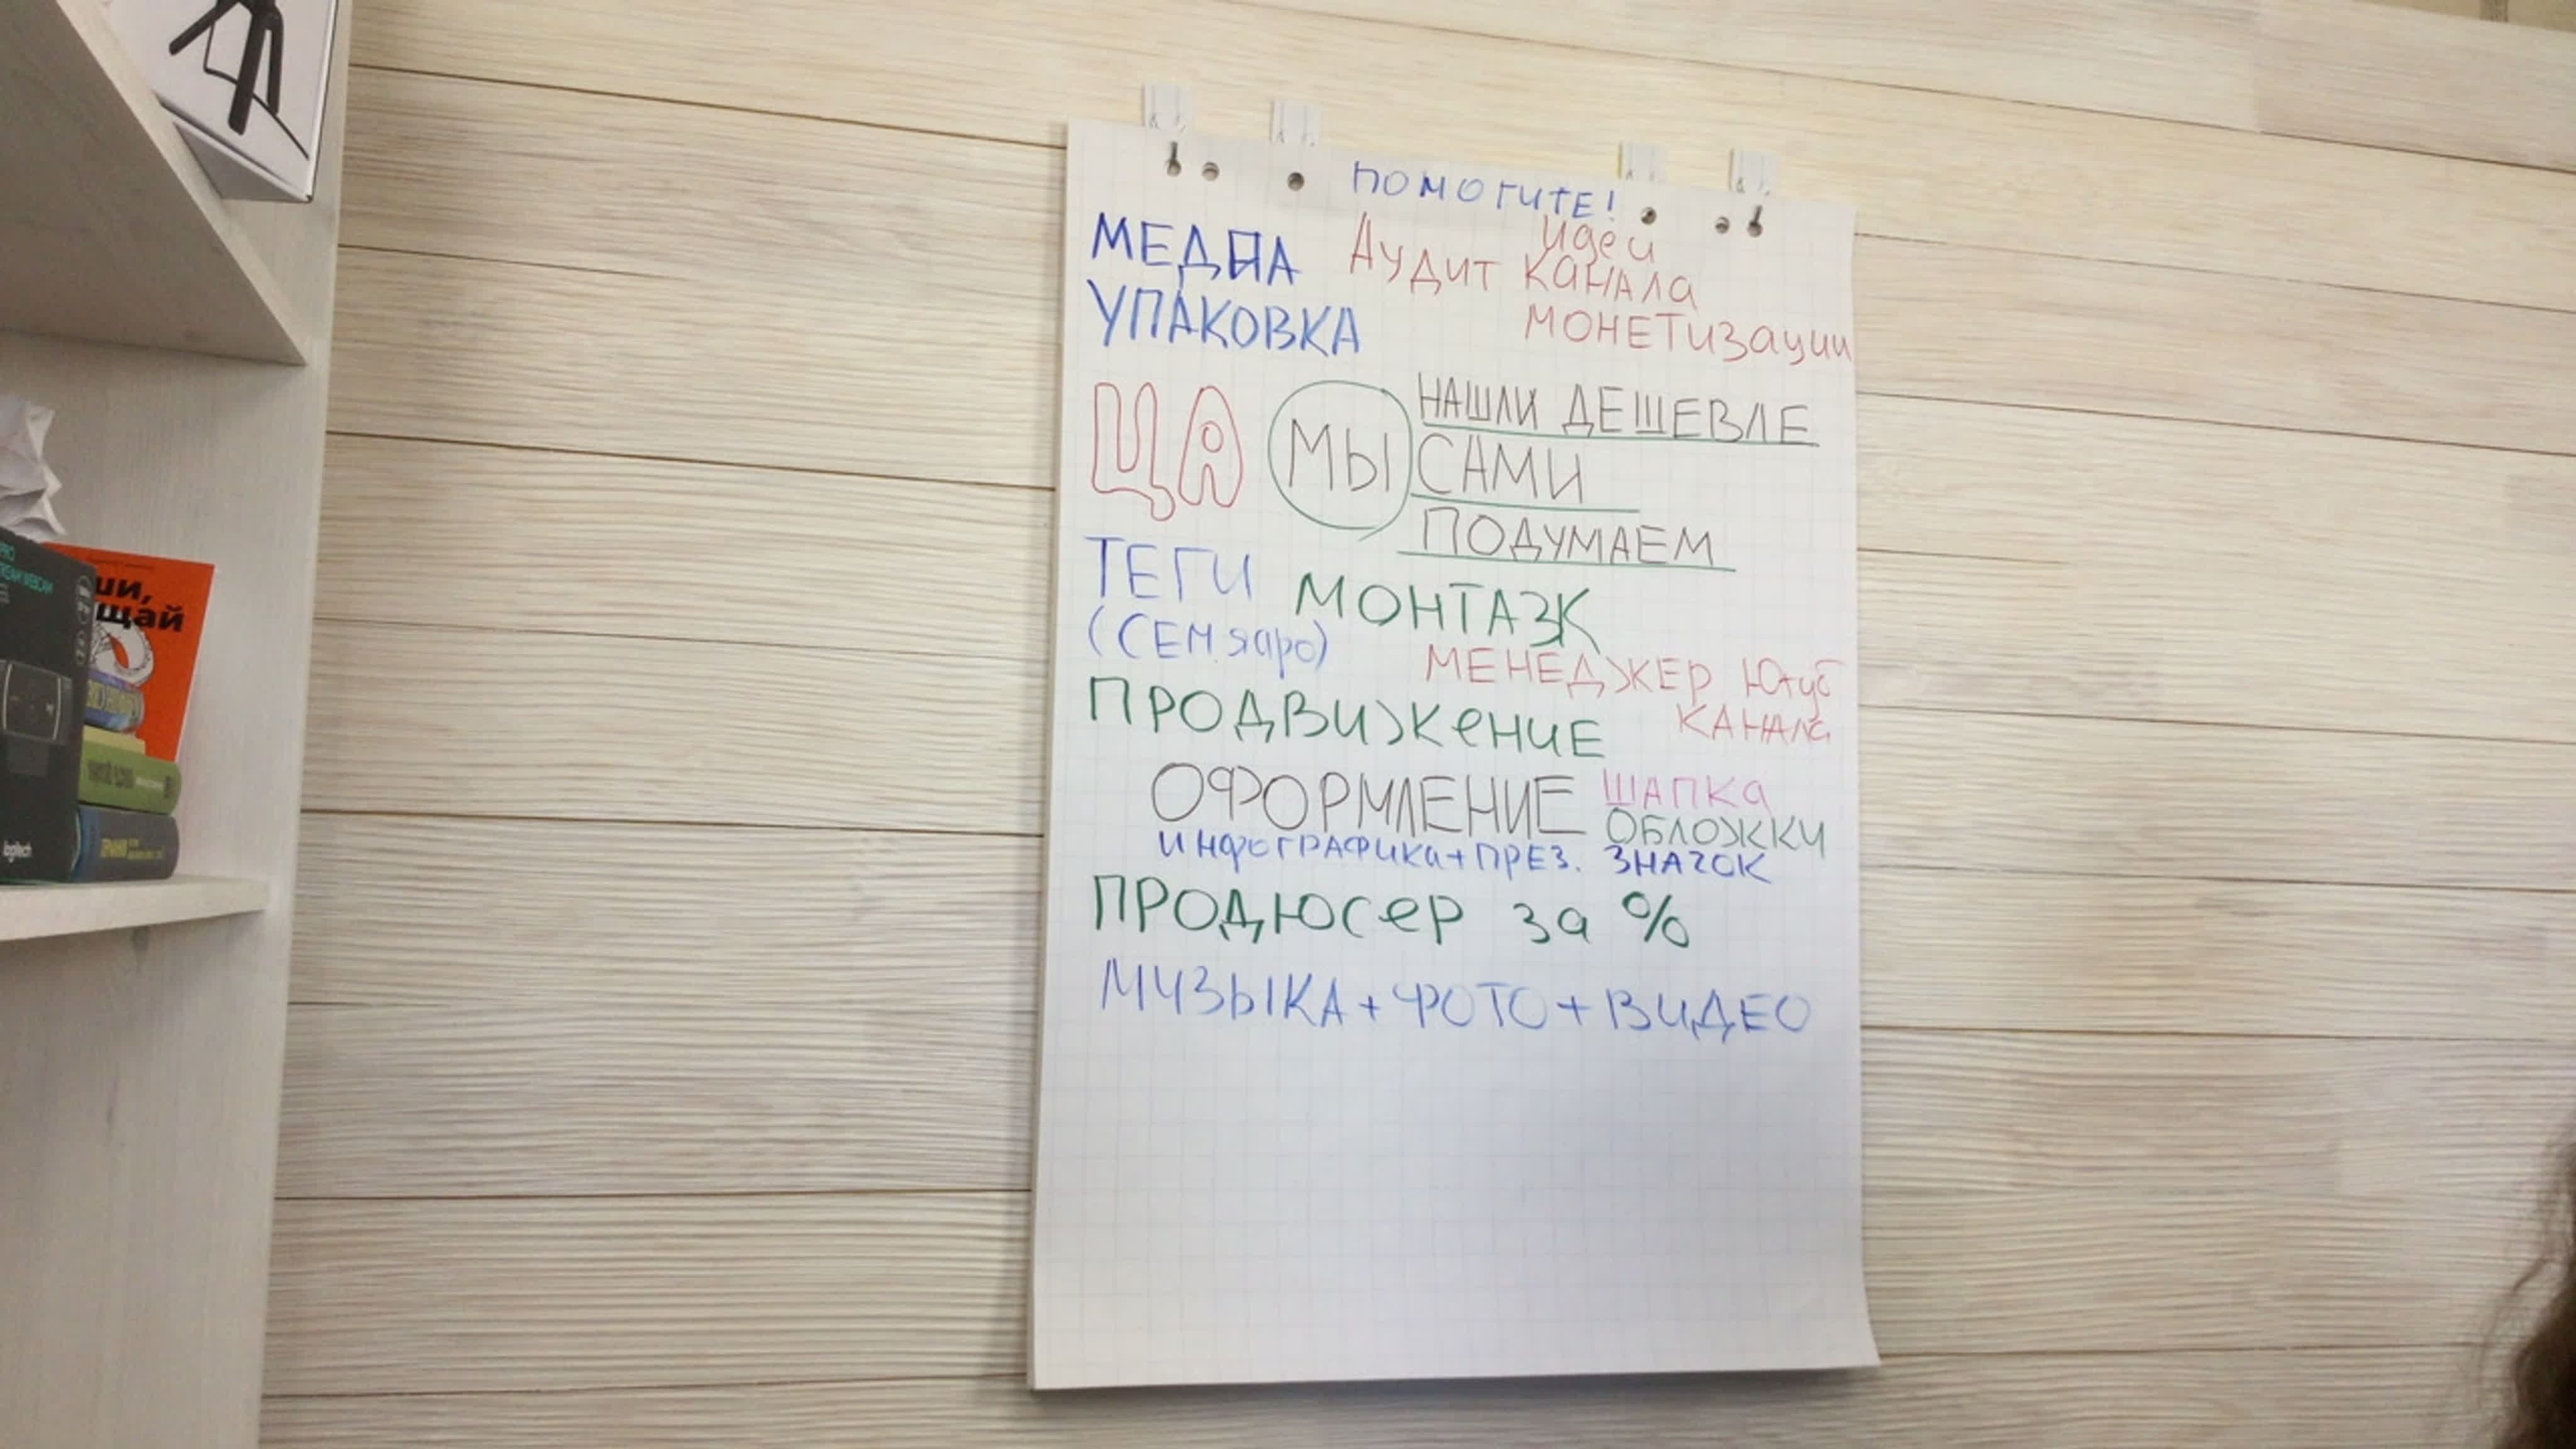 ПОМОГИТЕ!
МЕДИА
УПАКОВКА
Аудит
идеи
канала
монетизации
ЦА
МЫ
НАШЛИ ДЕШЕВЛЕ
САМИ
ПОДУМАЕМ
ТЕГИ
(СЕМ.ядро)
МОНТАЖ
МЕНЕДЖЕР Ютуб
КАНАЛА
ПРОДВИЖеНИЕ
ОФОРМЛЕНИЕ
ШАПКа
ОБЛОЖКИ
ЗНАЧОК
ИНФОГРАФИКа+ПРЕЗ.
ПРОДЮСеР за %
МУЗЫКА+ФОТО+ВИДЕО
ши,
щай
logitech